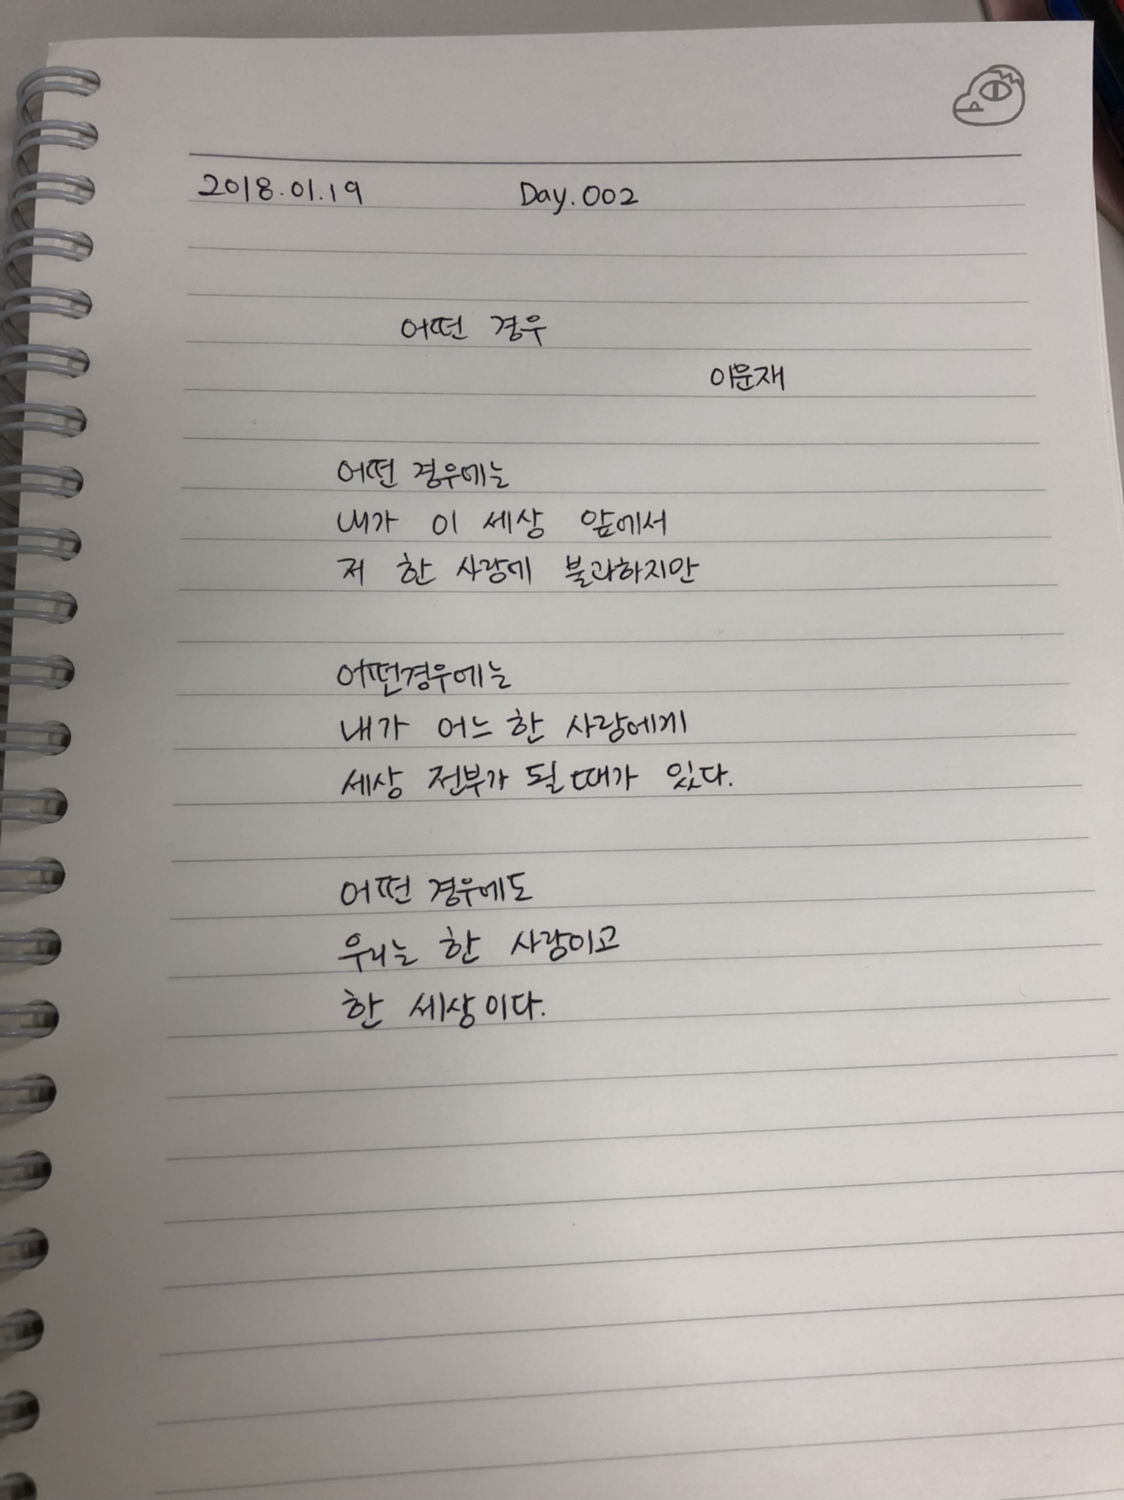 2018.01.19 Day.002
어떤 경우
이문재
어떤 경우에는
내가 이 세상 앞에서
저 한 사람에 불과하지만
어떤경우에는
내가 어느 한 사람에게
세상 전부가 될 때가 있다.
어떤 경우에도
우리는 한 사람이고
한 세상이다.